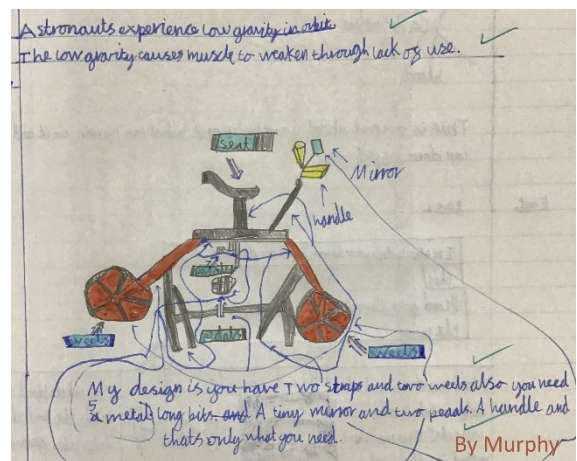 Astronauts experience low gravity in orbit
The low gravity causes muscle to weaken through lack of use.
seat
Mirror
handle
pedals
pedals
weels
weels
My design is you have Two straps and two weels also you need
5 metal long bits and A tiny mirror and two pedals. A handle and
thats only what you need.
By Murphy